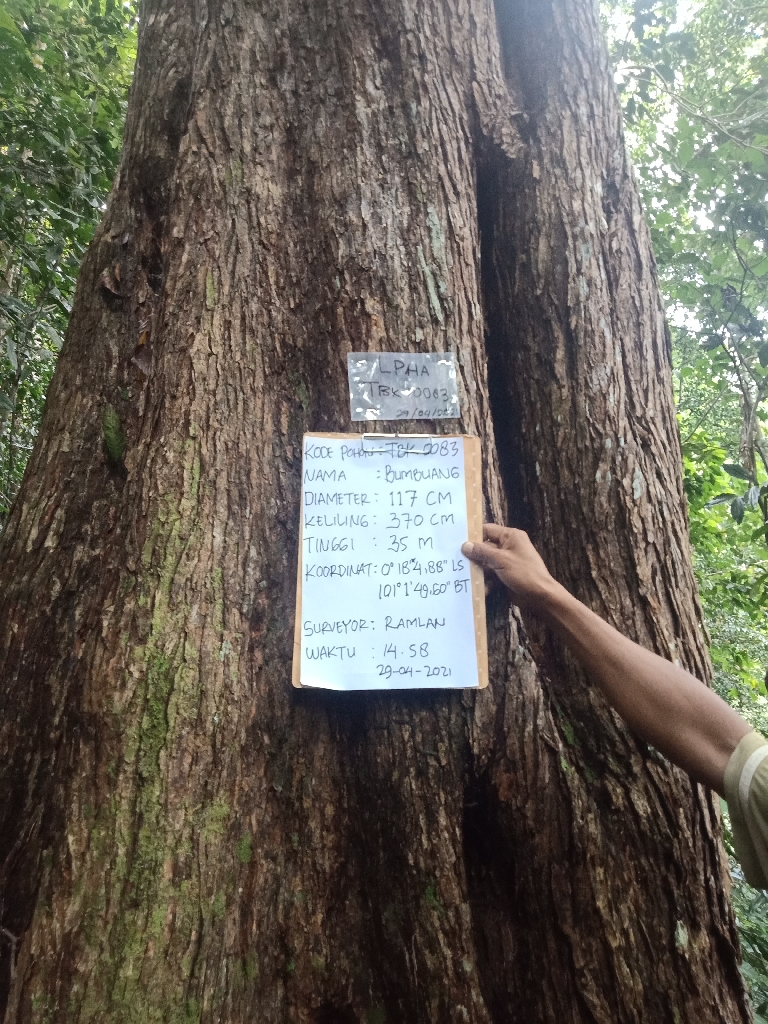 LPHA
TBK 0083
29/04/2021
KODE POHON : TBK 0083
NAMA : BUMBUANG
DIAMETER : 117 CM
KELILING : 370 CM
TINGGI : 35 M
KOORDINAT : 0°18'4.88" LS
101°1'49.60" BT
SURVEYOR : RAMLAN
WAKTU : 14.58
29-04-2021